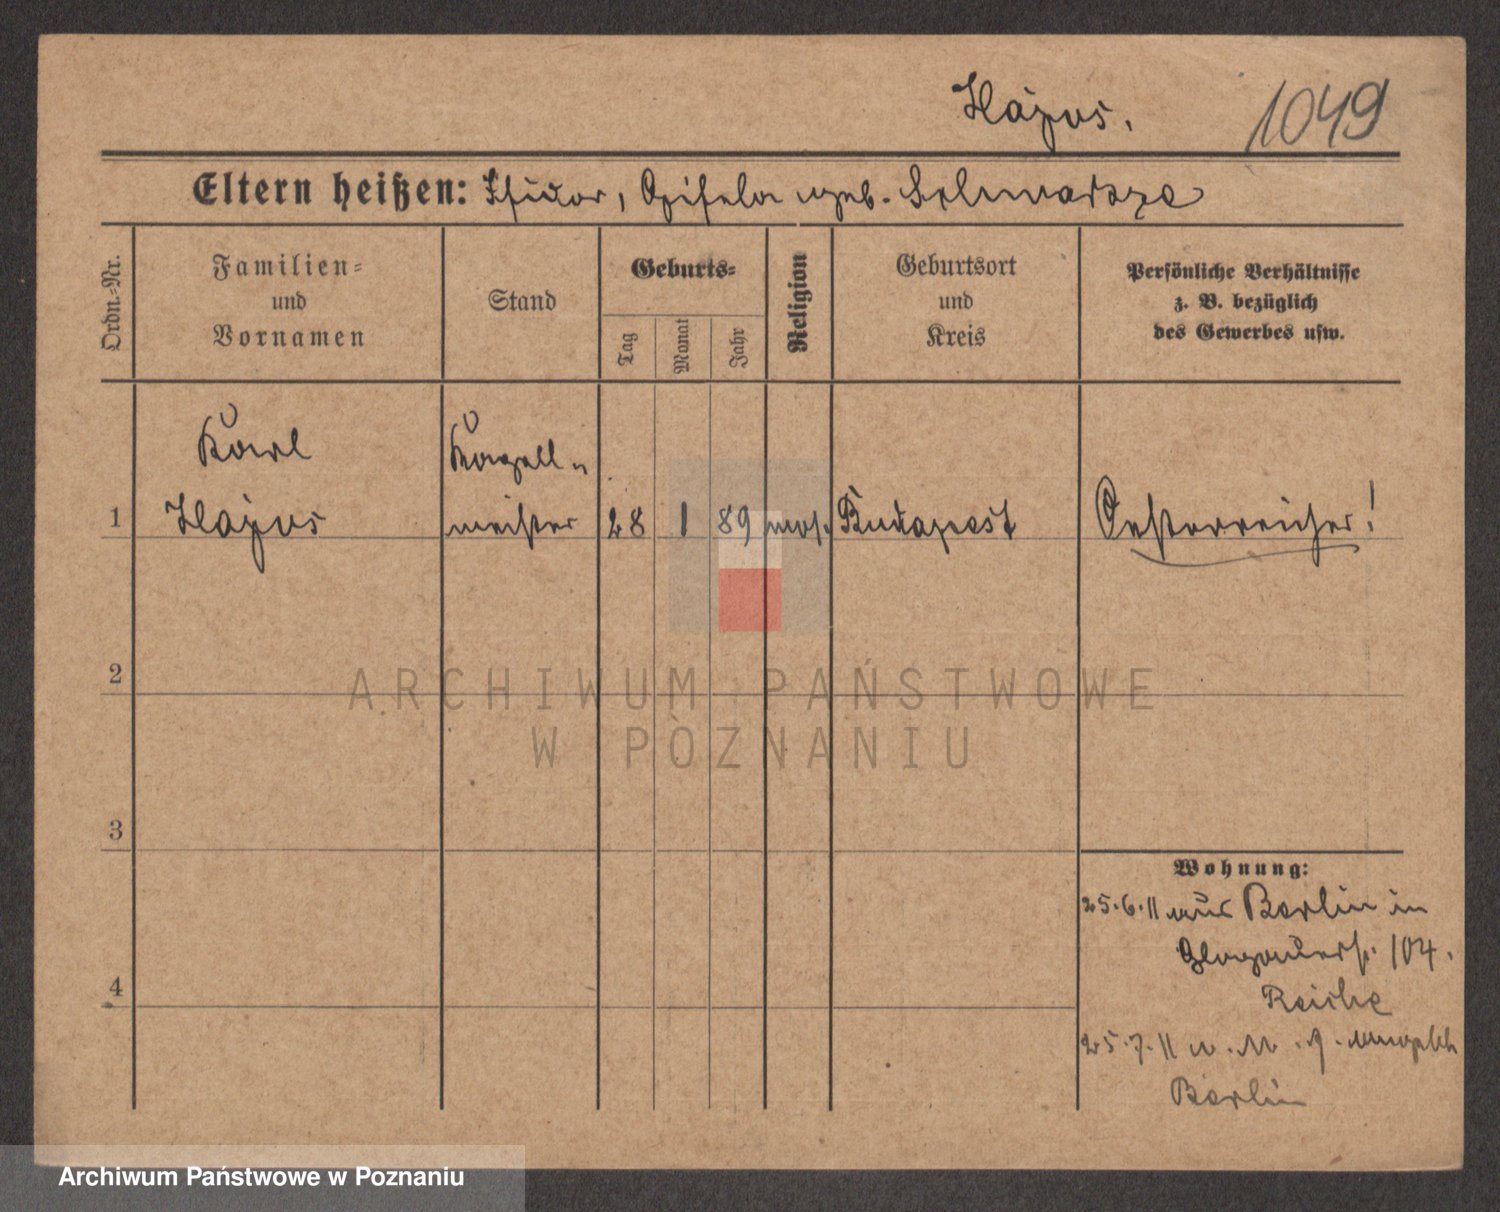 Hajos.
1049
Eltern heißen: Isidor, Gisela geb. Schwarcze
Ordn.-Nr.
Familien-
und
Vornamen
Stand
Geburts-
Tag
Monat
Jahr
Religion
Geburtsort
und
Kreis
Persönliche Verhältnisse
z. B. bezüglich
des Gewerbes usw.
Karl
Kapell-
1 Hajos meister 28 1 89 mos. Budapest Oesterreicher!
2
ARCHIWUM PAŃSTWOWE
W POZNANIU
3
Wohnung:
25.6.11 aus Berlin in
Glogauerstr. 104.
Reiche
4
25.7.11
Berlin
Archiwum Państwowe w Poznaniu